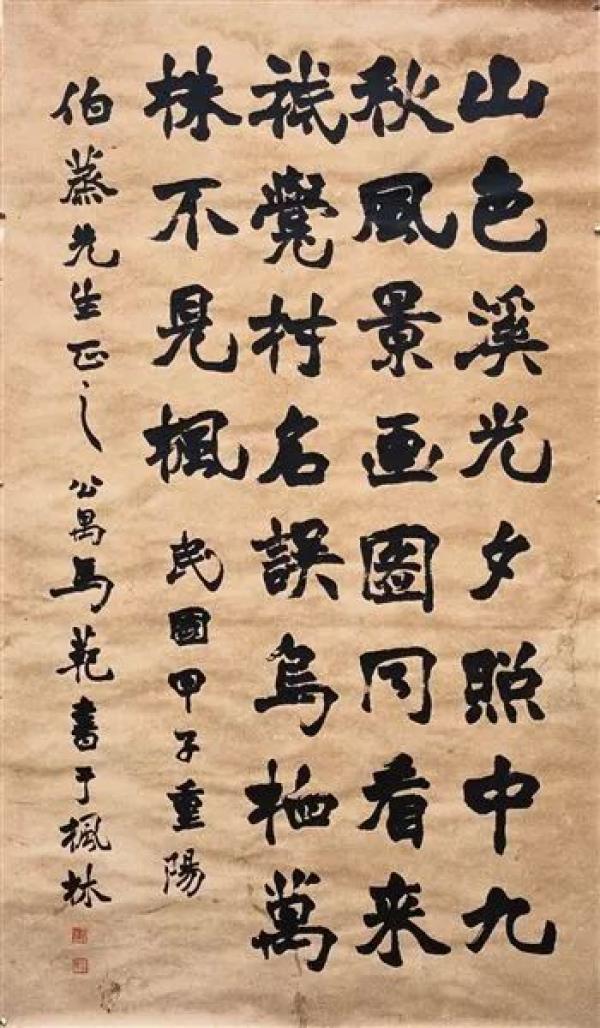 山色溪光夕照中九
秋風景画圖同看来
祇覺村名誤烏桕萬
株不見楓 民國甲子重陽
伯蒸先生正之 公禺馬範書于楓林